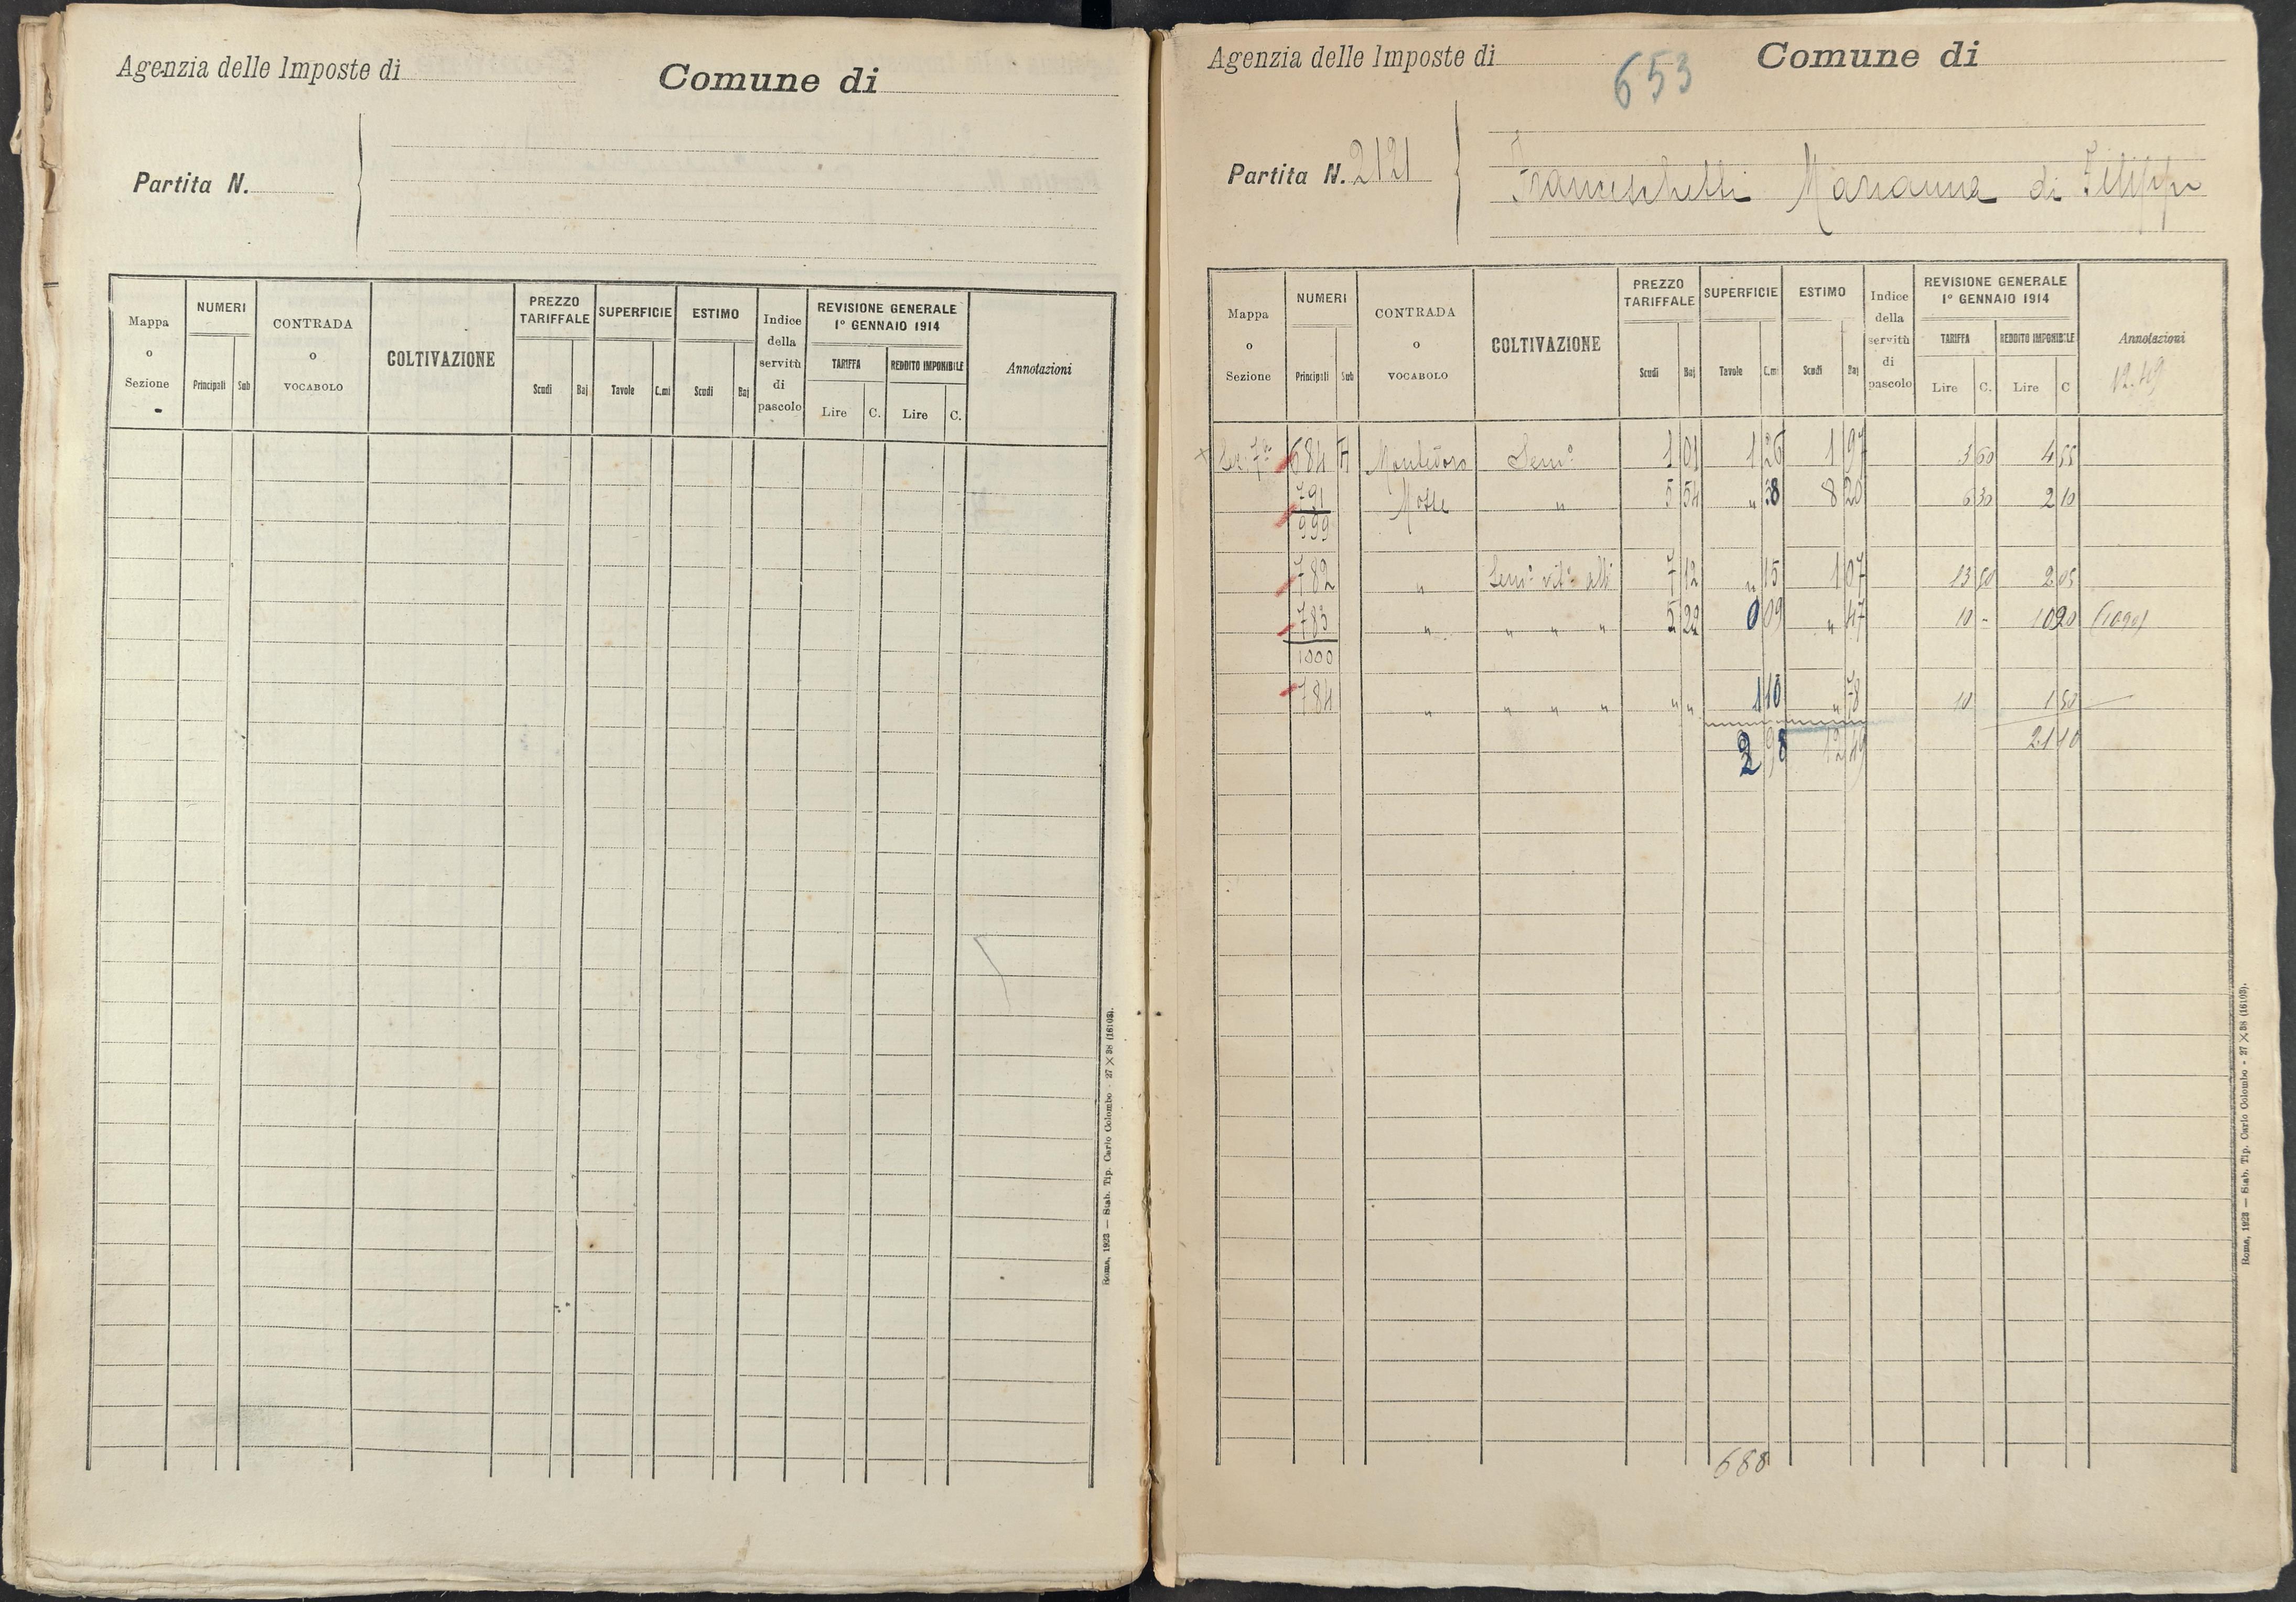 Agenzia delle Imposte di
Comune di
Partita N.
Mappa o Sezione
NUMERI
Principali Sub
CONTRADA o VOCABOLO
COLTIVAZIONE
PREZZO TARIFFALE
Scudi Baj
SUPERFICIE
Tavole C.mi
ESTIMO
Scudi Baj
Indice della servitù di pascolo
REVISIONE GENERALE 1° GENNAIO 1914
TARIFFA
Lire C.
REDDITO IMPONIBILE
Lire C.
Annotazioni
Roma, 1923 — Stab. Tip. Carlo Colombo - 27 X 38 (16103).
Agenzia delle Imposte di
653
Comune di
Partita N. 2121
Franceschelli Marianna di Filippo
Mappa o Sezione
NUMERI
Principali Sub
CONTRADA o VOCABOLO
COLTIVAZIONE
PREZZO TARIFFALE
Scudi Baj
SUPERFICIE
Tavole C.mi
ESTIMO
Scudi Baj
Indice della servitù di pascolo
REVISIONE GENERALE 1° GENNAIO 1914
TARIFFA
Lire C.
REDDITO IMPONIBILE
Lire C
Annotazioni
12.49
Sez. 7ª 684 Montedoro Sem° 1 01 1 26 1 97 3 60 4 55
791 " 5 54 " 38 8 20 6 30 2 10
999
782 " Sem° vit° alb 7 12 " 15 1 07 13 50 2 05
783 " " " " 5 22 0 09 " 47 10 - 10 90 (1090)
1000
784 " " " " " " 1 10 " 78 10 1 50
2 98 12 49 21 10
688
Roma, 1923 — Stab. Tip. Carlo Colombo - 27 X 38 (16103).